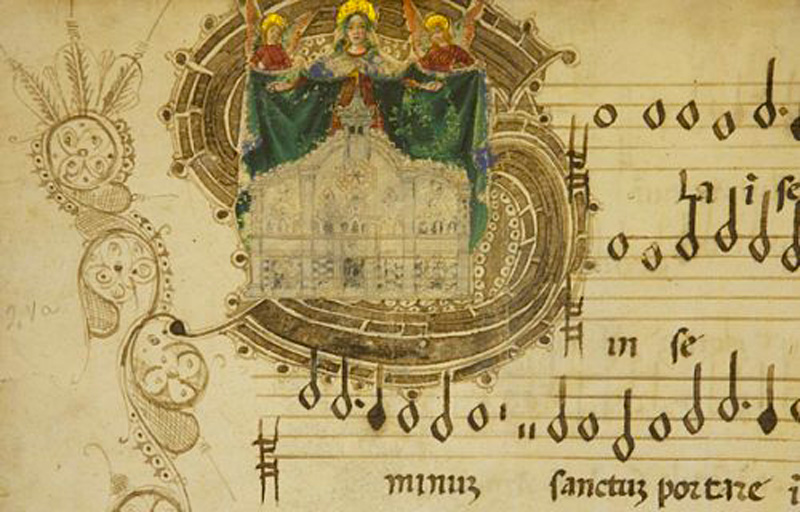 La i se
in se
minus sanctus portare i